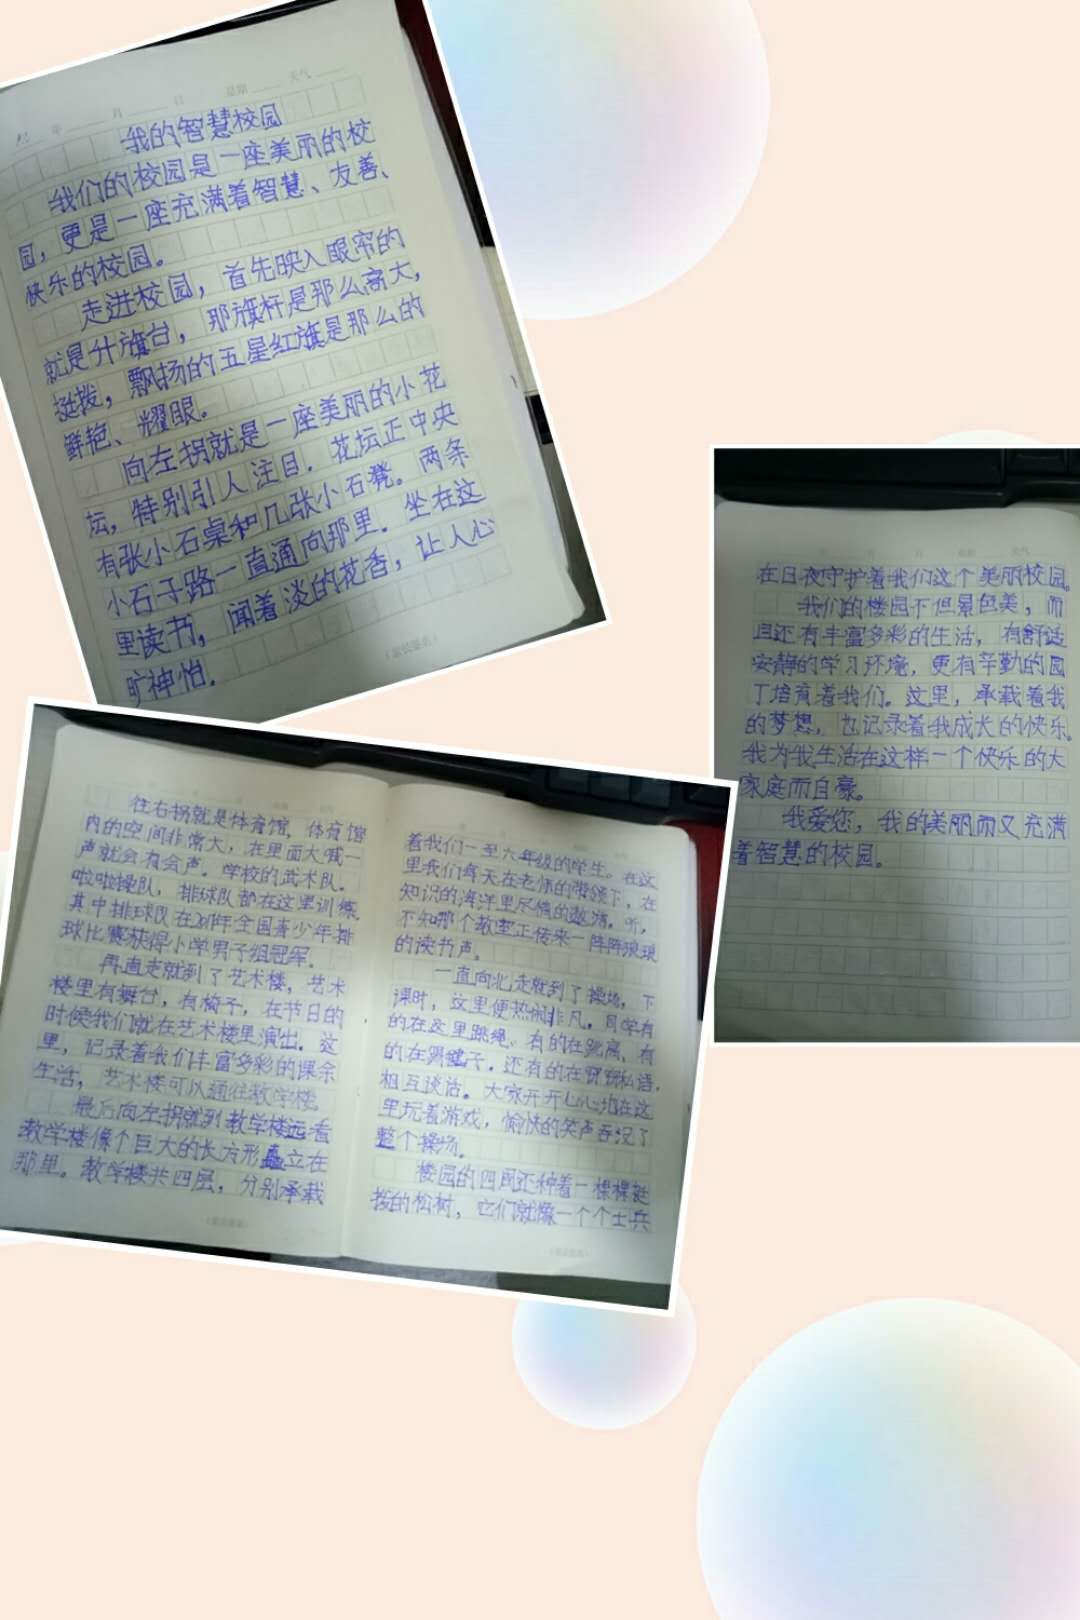 年 月 日 星期 天气
我的智慧校园
我们的校园是一座美丽的校
园，更是一座充满着智慧、友善、
快乐的校园。
走进校园，首先映入眼帘的
就是升旗台，那旗杆是那么高大，
挺拨，飘扬的五星红旗是那么的
鲜艳、耀眼。
向左拐就是一座美丽的小花
坛，特别引人注目。花坛正中央
有张小石桌和几张小石凳。两条
小石子路一直通向那里。坐在这
里读书，闻着淡的花香，让人心
旷神怡。
（家长签名）
往右拐就是体育馆，体育馆
内的空间非常大，在里面大喊一
声就会有会声。学校的武术队。
啦啦操队，排球队都在这里训练。
其中排球队在2017年全国青少年排
球比赛获得小学男子组冠军。
再直走就到了艺术楼，艺术
楼里有舞台，有椅子，在节日的
时候我们就在艺术楼里演出。这
里，记录着我们丰富多彩的课余
生活，艺术楼可以通往教学楼。
最后向左拐就到教学楼远看
教学楼像个巨大的长方形矗立在
那里。教学楼共四层，分别承载
着我们一至六年级的学生。在这
里我们每天在老师的带领下，在
知识的海洋里尽情的遨游。听，
不知那个教室正传来一阵阵琅琅
的读书声。
一直向北走就到了操场，下
课时，这里便热闹非凡。同学有
的在这里跳绳、有的在跳高、有
的在踢毽子。还有的在窃窃私语，
相互谈话。大家开开心心地在这
里玩着游戏，愉快的笑声吞没了
整个操场。
楼园的四周还种着一棵棵挺
拨的松树，它们就像一个个士兵
在日夜守护着我们这个美丽校园。
我们的楼园不但景色美，而
且还有丰富多彩的生活，有舒适
安静的学习环境，更有辛勤的园
丁培育着我们。这里，承载着我
的梦想，也记录着我成长的快乐。
我为我生活在这样一个快乐的大
家庭而自豪。
我爱您，我的美丽而又充满
着智慧的校园。